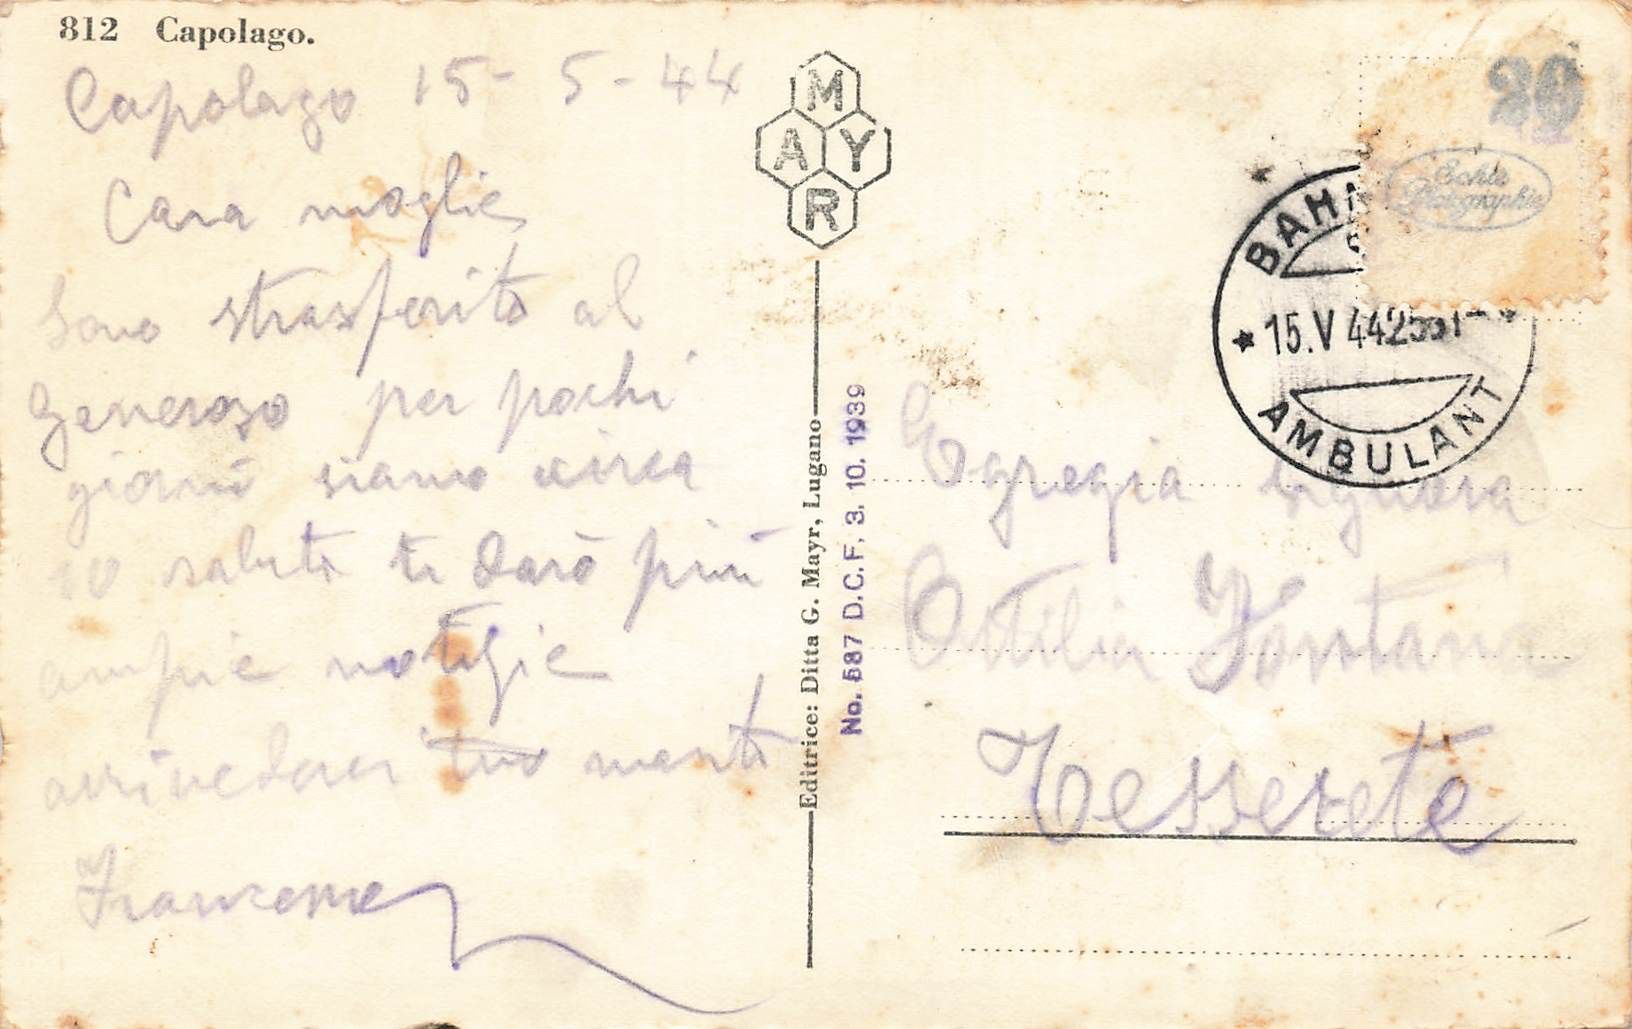 812 Capolago.
Capolago 15-5-44
Cara moglie
Sono strasferito al
Generoso per pochi
giorni siamo circa
10 saluti ti darò più
ampie notizie
arrivederci tuo marito
MAYR
Editrice: Ditta G. Mayr, Lugano
No. 587 D.C.F. 3. 10. 1939
20
BAH
15.V 44
AMBULANT
Egregia Signora
Ottilia Fontana
Tesserete